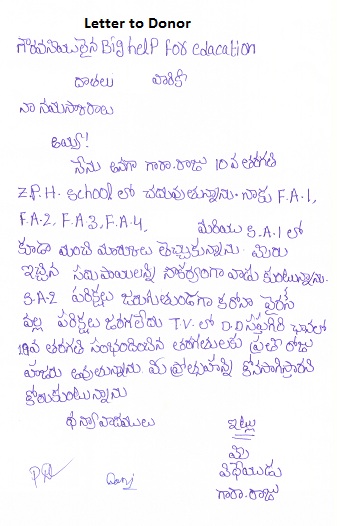 Letter to Donor
గౌరవనీయులైన Big help for edacation
దాతలు వారికి
నా నమస్కారాలు
అయ్యా!
నేను అనగా గారా.రాజు 10వ తరగతి
Z.P.H. School లో చదువుతున్నాను. నాకు F.A-1,
F.A-2, F.A 3, F.A-4, మరియు S.A-1 లో
కూడా మంచి మార్కులు తెచ్చుకున్నాను. మీరు
ఇచ్చిన సదుపాయలన్ని వాడు కుంటున్నాను.
S.A-2 పరిక్షలు జరుగుతుండగా కరోనా వైరస్
వల్ల పరిక్షలు జరగలేదు T.V. లో D.D సప్తగిరి ఛానల్లో
10వ తరగతి సంభందించిన తరగతులకు ప్రతి రోజు
హాజరు అవుతున్నాను మీ ప్రోత్సాహన్ని కొనసాగిస్తారని
కోరుకుంటున్నాను
ధన్యవాదములు ఇట్లు
మీ
విధేయుడు
గారా.రాజు